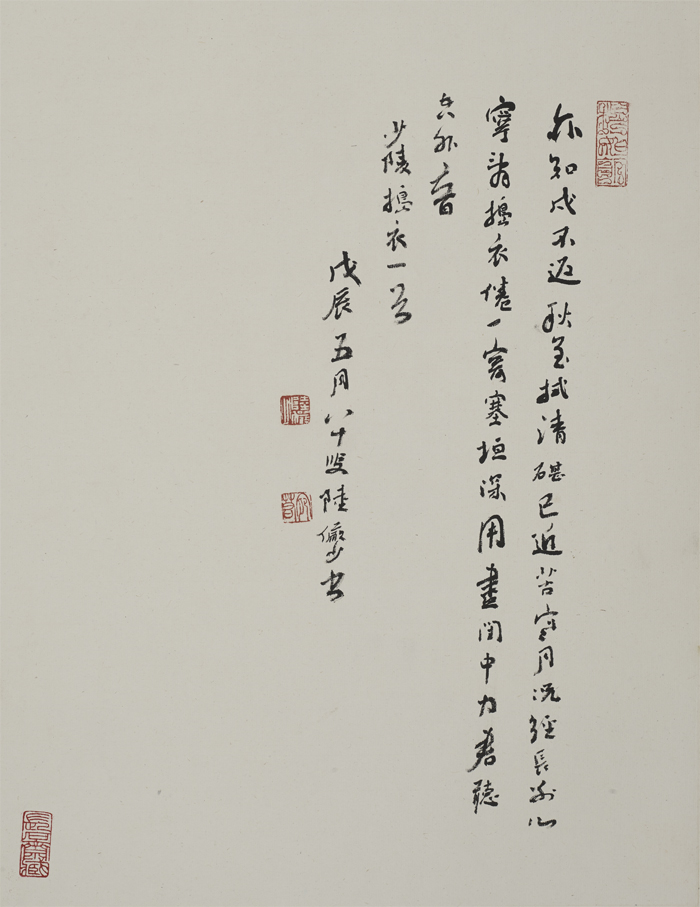 亦知戍不返秋至拭清碪已近苦寒月況經長別心
寧辭搗衣倦一寄塞垣深用盡閨中力君聽
空外音
少陵搗衣一首
戊辰五月八十叟陸儼少書